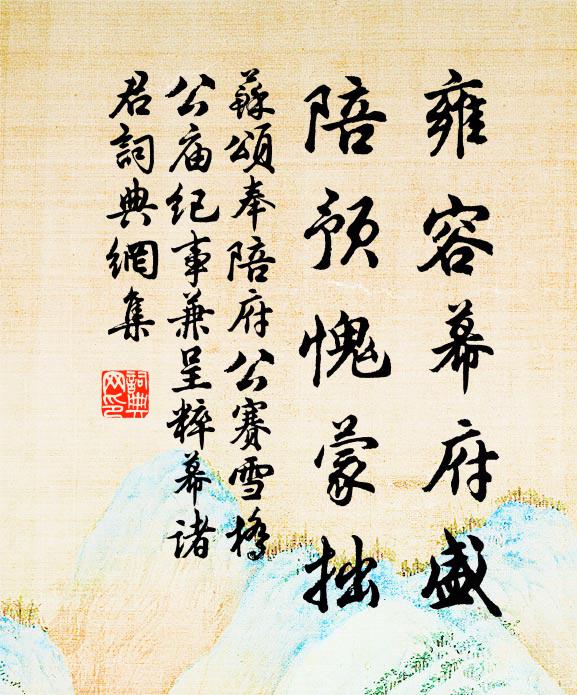 雍容幕府盛
陪预愧蒙拙
蘇頌奉陪府公賽雪橋
公庙纪事兼呈粹幕诸
君詞典網集
詞典
网印